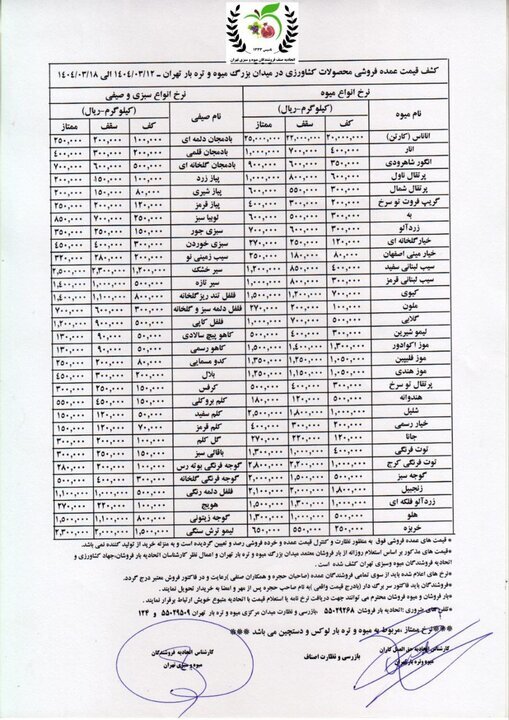 تاسیس ۱۳۲۳
اتحادیه صنف فروشندگان میوه و سبزی تهران
کشف قیمت عمده فروشی محصولات کشاورزی در میدان بزرگ میوه و تره بار تهران - ۱۴۰۴/۰۳/۱۲ الی ۱۴۰۴/۰۳/۱۸
نرخ انواع میوه نرخ انواع سبزی و صیفی
نام میوه (کیلوگرم-ریال) نام صیفی (کیلوگرم-ریال)
کف سقف ممتاز کف سقف ممتاز
اناناس (کارتن) ۲۰,۰۰۰,۰۰۰ ۲۲,۰۰۰,۰۰۰ ۲۵,۰۰۰,۰۰۰ بادمجان دلمه ای ۱۰۰,۰۰۰ ۲۰۰,۰۰۰ ۲۵۰,۰۰۰
انار ۴۰۰,۰۰۰ ۷۰۰,۰۰۰ ۱,۰۰۰,۰۰۰ بادمجان قلمی ۲۰۰,۰۰۰ ۳۰۰,۰۰۰ ۴۰۰,۰۰۰
انگور شاهرودی ۳۵۰,۰۰۰ ۶۰۰,۰۰۰ ۹۰۰,۰۰۰ بادمجان گلخانه ای ۵۰۰,۰۰۰ ۷۰۰,۰۰۰
پرتقال ناول ۶۰۰,۰۰۰ ۸۰۰,۰۰۰ ۱,۰۰۰,۰۰۰ پیاز زرد ۱۰۰,۰۰۰ ۱۵۰,۰۰۰ ۲۰۰,۰۰۰
پرتقال شمال ۳۰۰,۰۰۰ ۵۵۰,۰۰۰ ۶۰۰,۰۰۰ پیاز شیری ۸۰,۰۰۰ ۱۵۰,۰۰۰ ۲۰۰,۰۰۰
گریپ فروت تو سرخ ۳۰۰,۰۰۰ ۶۰۰,۰۰۰ پیاز قرمز ۱۲۰,۰۰۰ ۲۰۰,۰۰۰ ۲۵۰,۰۰۰
به ۳۰۰,۰۰۰ ۵۰۰,۰۰۰ ۶۰۰,۰۰۰ لوبیا سبز ۲۵۰,۰۰۰ ۷۰۰,۰۰۰ ۸۵۰,۰۰۰
زردآلو ۳۰۰,۰۰۰ ۶۰۰,۰۰۰ ۷۰۰,۰۰۰ سبزی جور ۱۵۰,۰۰۰ ۲۵۰,۰۰۰ ۳۵۰,۰۰۰
خیارگلخانه ای ۱۲۰,۰۰۰ ۲۵۰,۰۰۰ ۲۷۰,۰۰۰ سبزی خوردن ۳۰۰,۰۰۰ ۴۰۰,۰۰۰ ۴۵۰,۰۰۰
خیار مینی اصفهان ۸۰,۰۰۰ ۱۸۰,۰۰۰ ۲۵۰,۰۰۰ سیب زمینی نو ۲۰۰,۰۰۰ ۲۸۰,۰۰۰ ۳۲۰,۰۰۰
سیب لبنانی سفید ۴۰۰,۰۰۰ ۸۵۰,۰۰۰ ۱,۲۰۰,۰۰۰ سیر خشک ۱,۲۰۰,۰۰۰ ۲,۳۰۰,۰۰۰ ۲,۵۰۰,۰۰۰
سیب لبنانی قرمز ۳۰۰,۰۰۰ ۸۰۰,۰۰۰ ۱,۰۰۰,۰۰۰ سیر تازه ۵۰۰,۰۰۰ ۱,۰۰۰,۰۰۰ ۱,۴۰۰,۰۰۰
کیوی ۷۰۰,۰۰۰ ۱,۲۰۰,۰۰۰ ۱,۵۰۰,۰۰۰ فلفل تند ریزگلخانه ۸۰۰,۰۰۰ ۱,۱۰۰,۰۰۰ ۱,۴۰۰,۰۰۰
ملون ۱۰۰,۰۰۰ ۲۰۰,۰۰۰ ۲۷۰,۰۰۰ فلفل دلمه سبز و گلخانه ۳۰۰,۰۰۰ ۶۰۰,۰۰۰ ۷۰۰,۰۰۰
گلابی ۵۰۰,۰۰۰ ۱,۰۰۰,۰۰۰ فلفل کاپی ۵۰۰,۰۰۰ ۹۰۰,۰۰۰ ۱,۲۰۰,۰۰۰
لیمو شیرین ۳۰۰,۰۰۰ ۴۰۰,۰۰۰ ۵۰۰,۰۰۰ کاهو پیچ سالادی ۵۰,۰۰۰ ۹۰,۰۰۰ ۱۳۰,۰۰۰
موز اکوادور ۱,۳۰۰,۰۰۰ ۱,۴۰۰,۰۰۰ ۱,۵۰۰,۰۰۰ کاهو رسمی ۵۰,۰۰۰ ۹۰,۰۰۰ ۱۳۰,۰۰۰
موز فلیپین ۱,۰۵۰,۰۰۰ ۱,۲۰۰,۰۰۰ ۱,۳۵۰,۰۰۰ کدو مسمایی ۸۰,۰۰۰ ۲۰۰,۰۰۰ ۲۵۰,۰۰۰
موز هندی ۱,۰۵۰,۰۰۰ ۱,۱۵۰,۰۰۰ ۱,۲۵۰,۰۰۰ بلال ۲۰۰,۰۰۰ ۳۰۰,۰۰۰ ۴۵۰,۰۰۰
پرتقال تو سرخ ۳۰۰,۰۰۰ ۴۰۰,۰۰۰ ۵۰۰,۰۰۰ کرفس ۱۵۰,۰۰۰ ۲۵۰,۰۰۰ ۳۰۰,۰۰۰
هندوانه ۵۰,۰۰۰ ۱۲۰,۰۰۰ ۱۸۰,۰۰۰ کلم بروکلی ۱۵۰,۰۰۰ ۴۰۰,۰۰۰ ۵۰۰,۰۰۰
شلیل ۱,۰۰۰,۰۰۰ ۱,۸۰۰,۰۰۰ ۲,۵۰۰,۰۰۰ کلم سفید ۵۰,۰۰۰ ۱۲۰,۰۰۰ ۱۵۰,۰۰۰
خیار رسمی ۱۰۰,۰۰۰ ۳۰۰,۰۰۰ ۴۰۰,۰۰۰ کلم قرمز ۷۰,۰۰۰ ۱۲۰,۰۰۰ ۱۵۰,۰۰۰
جانا ۱۲۰,۰۰۰ ۲۲۰,۰۰۰ ۲۷۰,۰۰۰ گل کلم ۱۰۰,۰۰۰ ۲۰۰,۰۰۰ ۳۰۰,۰۰۰
توت فرنگی ۴۰۰,۰۰۰ ۱,۰۰۰,۰۰۰ ۱,۳۰۰,۰۰۰ باقالی سبز ۱۵۰,۰۰۰ ۲۵۰,۰۰۰ ۳۰۰,۰۰۰
توت فرنگی کرج ۱,۰۰۰,۰۰۰ ۲,۲۰۰,۰۰۰ ۲,۸۰۰,۰۰۰ گوجه فرنگی بوته رس ۱۰۰,۰۰۰ ۲۰۰,۰۰۰ ۲۸۰,۰۰۰
گوجه سبز ۵۰۰,۰۰۰ ۱,۵۰۰,۰۰۰ ۲,۰۰۰,۰۰۰ گوجه فرنگی گلخانه ۳۰۰,۰۰۰ ۴۰۰,۰۰۰ ۵۰۰,۰۰۰
زنجبیل ۲,۰۰۰,۰۰۰ ۲,۱۰۰,۰۰۰ فلفل دلمه رنگی ۵۰۰,۰۰۰ ۱,۰۰۰,۰۰۰ ۱,۱۰۰,۰۰۰
زردآلو فلکه ای ۵۰۰,۰۰۰ ۱,۰۰۰,۰۰۰ ۱,۵۰۰,۰۰۰ هویج ۱۰۰,۰۰۰ ۲۲۰,۰۰۰ ۲۷۰,۰۰۰
هلو ۵۰۰,۰۰۰ ۱,۰۰۰,۰۰۰ ۱,۳۰۰,۰۰۰ گوجه زیتونی ۸۰۰,۰۰۰ ۱,۱۰۰,۰۰۰ ۱,۵۰۰,۰۰۰
خربزه ۲۵۰,۰۰۰ ۵۵۰,۰۰۰ ۶۵۰,۰۰۰ لیمو ترش سنگی ۱,۵۰۰,۰۰۰ ۲,۰۰۰,۰۰۰ ۲,۳۰۰,۰۰۰
*قیمت های عمده فروشی فوق به منظور نظارت و کنترل قیمت عمده و خرده فروشی رصد و تعیین گردیده است و به منزله خرید از تولید کننده نمی باشد.
*قیمت های مذکور بر اساس استعلام روزانه از بار فروشان معتمد میدان بزرگ میوه و تره بار تهران و اعمال نظر کارشناسان اتحادیه بار فروشان،جهاد کشاورزی و
اتحادیه فروشندگان میوه وسبزی تهران کشف شده است.
*نرخ های اعلام شده باید از سوی تمامی فروشندگان عمده (صاحبان حجره و همکاران صنفی )رعایت و در فاکتور فروش معتبر درج گردد.
*فروشندگان باید فاکتور سر برگ دار (بادرج قیمت واقعی )به نام صاحب حجره پس از مهر و امضا به خریدار تحویل نمایند.
*بار فروشان و میوه فروشان محترم می توانند جهت دریافت نرخ نامه یا استعلام قیمت با اتحادیه متبوع خویش ارتباط برقرار نمایند.
*تلفن های ضروری :اتحادیه بار فروشان ۵۵۰۲۹۲۶۸ -بازرسی و نظارت میدان مرکزی میوه و تره بار تهران ۵۵۰۲۹۵۰۹ و ۱۲۴
***نرخ ممتاز ،مربوط به میوه و تره بار لوکس و دستچین می باشد ***
کارشناس اتحادیه حق العمل کاران بازرسی و نظارت اصناف کارشناس اتحادیه فروشندگان
میوه وتره بارتهران میوه وسبزی تهران